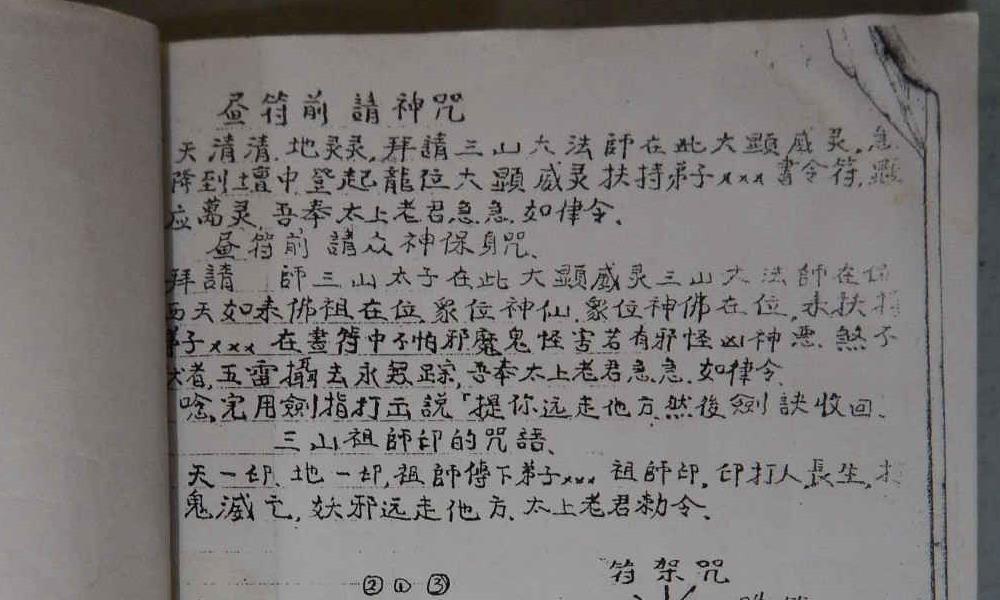 昼符前請神咒
天清清.地灵灵,拜請三山大法師在此大顯威灵.急
降到壇中登起龍位大顯威灵扶持弟子xxx書令符,顯
应萬灵.吾奉太上老君急急.如律令.
昼符前請众神保身咒.
拜請 師三山太子在此大顯威灵三山大法師在位
西天如来佛祖在位.衆位神仙.衆位神佛在位,来扶持
弟子xxx在書符中不怕邪魔鬼怪害若有邪怪凶神悪.煞不
者,五雷攝去永無踪,吾奉太上老君急急.如律令.
唸,完用劍指打出説「提你远走他方.然後劍訣收回.
三山祖師印的咒語.
天一印.地一印,祖師傳下弟子xxx祖師印.印打人,長生,打
鬼滅亡,妖邪远走他方.太上老君勅令.
② ① ③
符架咒